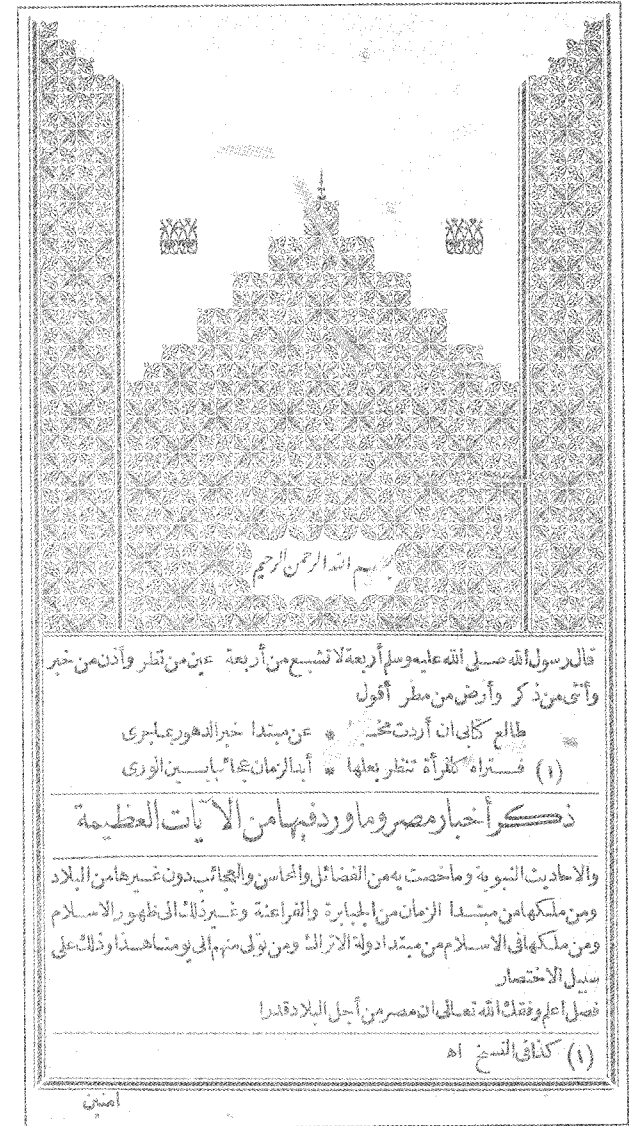 بسم الله الرحمن الرحيم
قال رسول الله صلى الله عليه وسلم أربعة لا تشبع من أربعة عين من نظر وأذن من خبر
وأنثى من ذكر وأرض من مطر أقول
طالع كتابي ان أردت * عن مبتدا خبر الدهور بما جرى
(١) فستراه كالمرأة تنظر بعلها * أبد الزمان عجائبا بين الورى
ذكر أخبار مصر وما ورد فيها من الآيات العظيمة
والاحاديث النبوية وما خصت به من الفضائل والمحاسن والعجائب دون غيرها من البلاد
ومن ملكها من مبتدا الزمان من الجبابرة والفراعنة وغير ذلك الى ظهور الاسلام
ومن ملكها فى الاسلام من مبتدا دولة الاتراك ومن تولى منهم الى يومنا هذا وذلك على
سبيل الاختصار
فصل اعلم وفقك الله تعالى ان مصر من أجل البلاد قدرا
(١) كذا فى النسخ اه